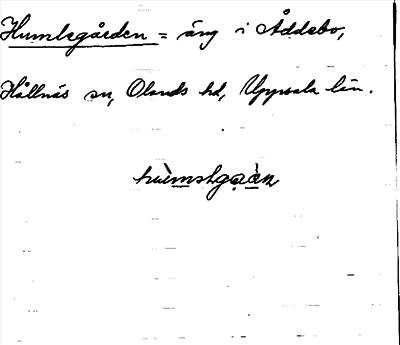 Humlegården = äng i Åddebo,
Hållnäs sn, Olands hd, Uppsala län.